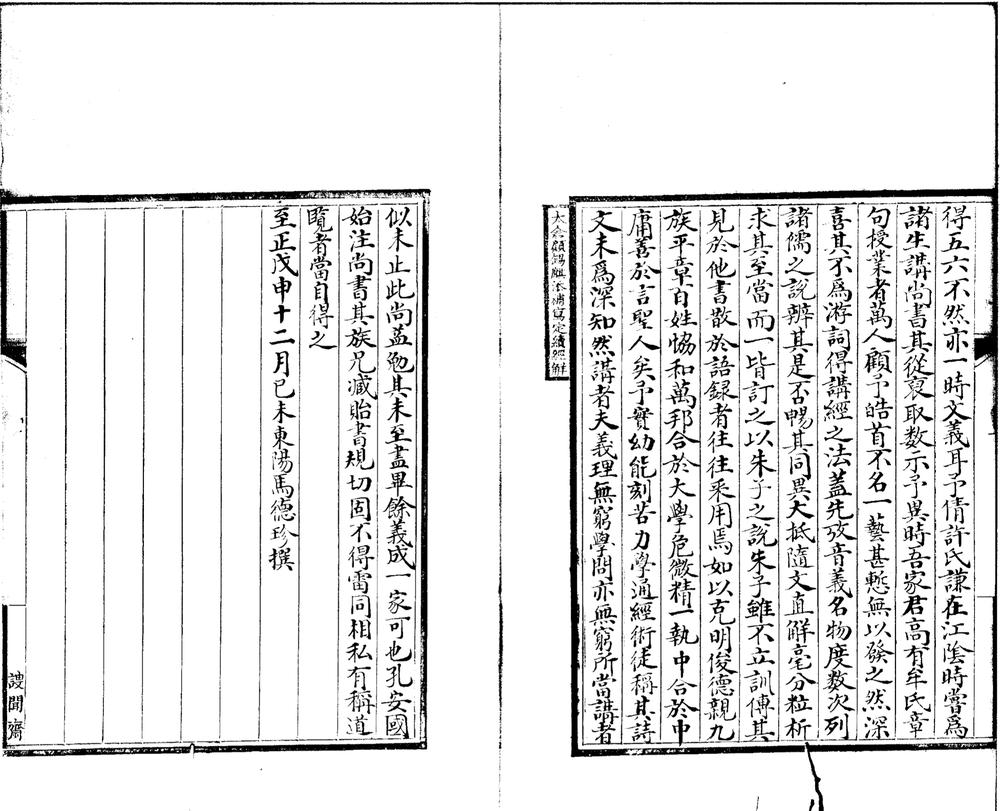 得五六不然亦一時文義耳予倩許氏謙在江陰時嘗爲
諸生講尚書其從裒取数示予異時吾家君高有牟氏章
句授業者萬人顧予皓首不名一藝甚慙無以發之然深
喜其不爲游詞得講經之法蓋先攷音義名物度數次列
諸儒之說辨其是否暢其同異大抵隨文直解毫分粒析
求其至當而一皆訂之以朱子之說朱子雖不立訓傳其
見於他書散於語録者往往采用焉如以克明俊德親九
族平章百姓恊和萬邦合於大學危微精一執中合於中
庸善於言聖人矣予實幼能刻苦力學通經術徒稱其詩
文未爲深知然講者夫義理無窮學問亦無窮所當講者
太倉顧錫麒添補寫定續經解
似未止此尚益勉其未至盡畢餘義成一家可也孔安國
始注尚書其族兄減貽書規切固不得雷同相私有稱道
覧者當自得之
至正戊申十二月己未東陽馬德珍撰
謏聞齋